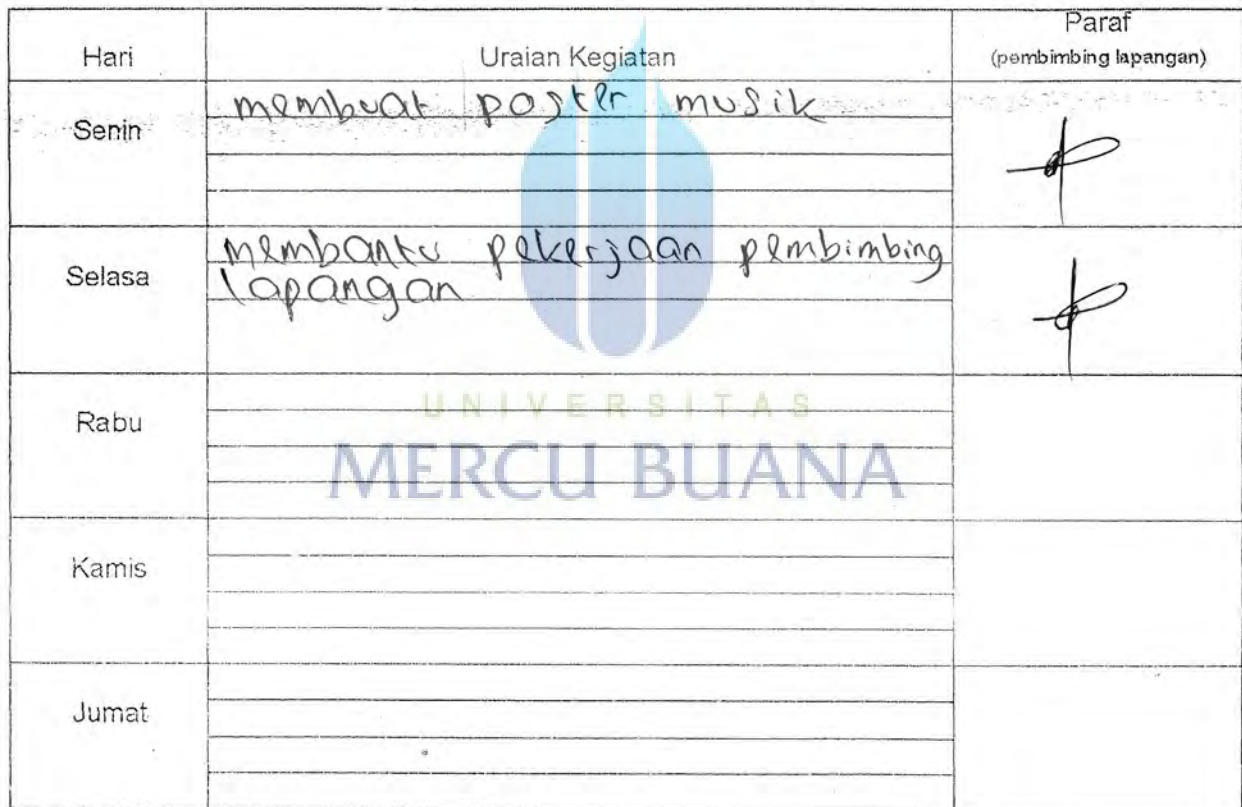 Hari Uraian Kegiatan Paraf
(pembimbing lapangan)
Senin membuat poster musik
Selasa membantu pekerjaan pembimbing
lapangan
Rabu
UNIVERSITAS
MERCU BUANA
Kamis
Jumat